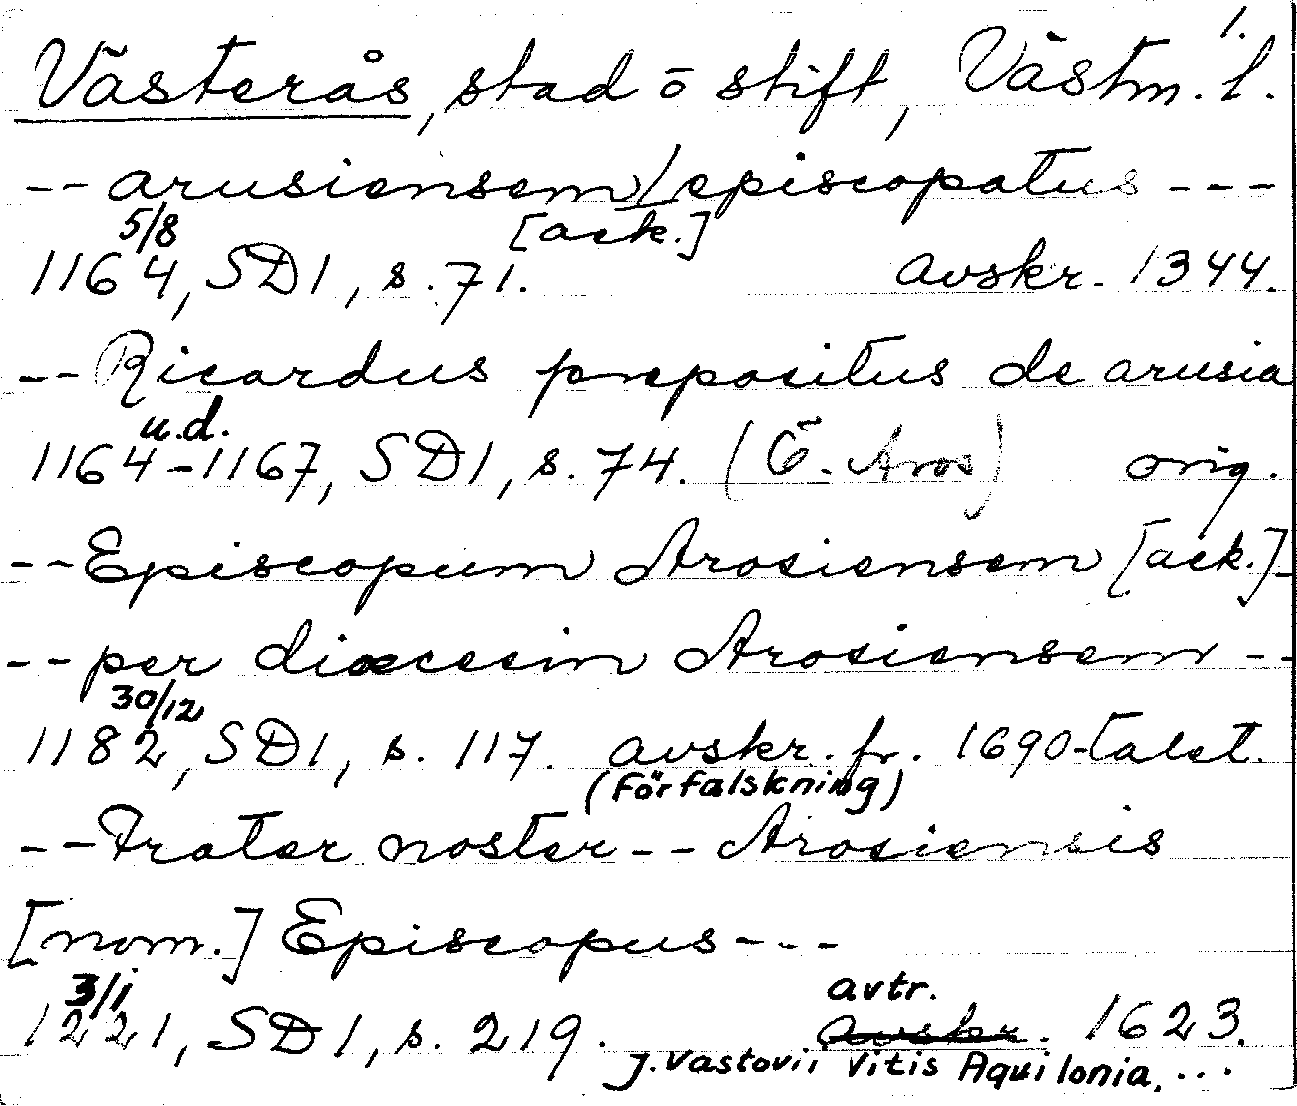 1.
Västerås, stad o stift, Västm. l.
-- arusiensem/episcopatus ---
[ack.]
5/8
1164, SD1, s. 71. avskr. 1344.
-- Ricardus prepositus de arusia
u.d.
1164-1167, SD1, s. 74. (Ö. Aros) orig.
-- Episcopum Arosiensem [ack.]
-- per diœcesim Arosiensem --
30/12
1182, SD1, s. 117. avskr. fr. 1690-talet.
(Förfalskning)
-- Frater noster -- Arosiensis
[nom.] Episcopus ---
3/1 avtr.
1221, SD1, s. 219. avskr. 1623.
J. Vastovii Vitis Aquilonia, ...